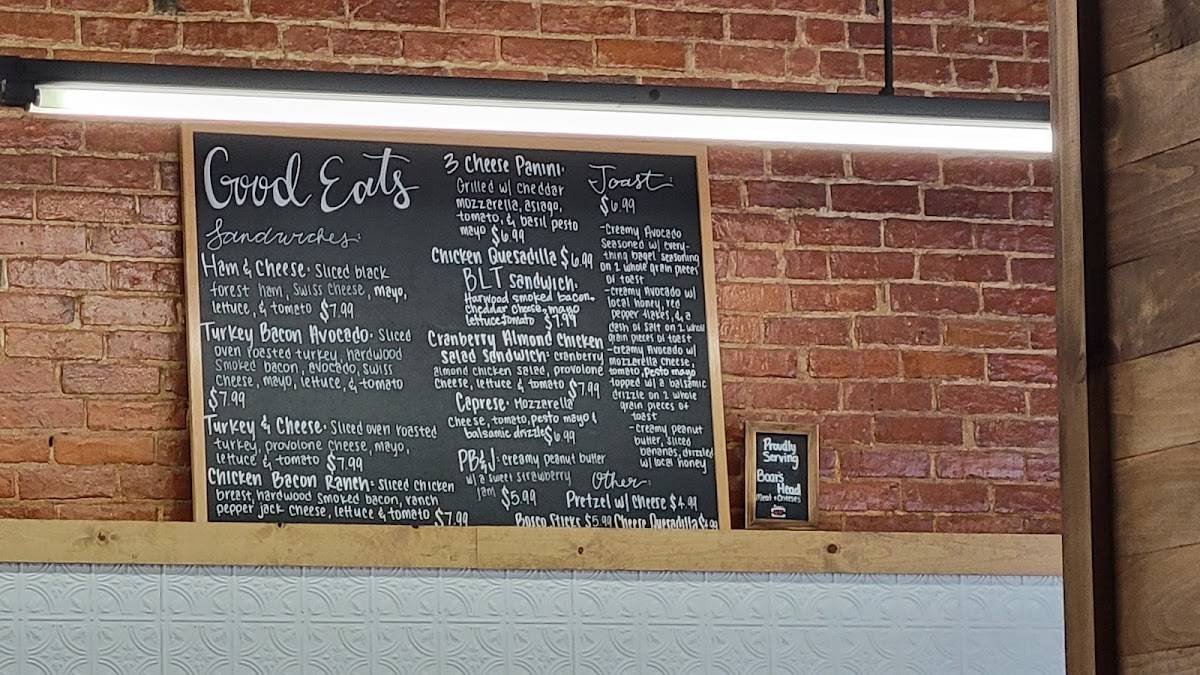 Good Eats
Sandwiches:
Ham & Cheese: Sliced black
forest ham, swiss cheese, mayo,
lettuce, & tomato $7.99
Turkey Bacon Avocado: Sliced
oven roasted turkey, hardwood
smoked bacon, avocado, swiss
cheese, mayo, lettuce, & tomato
$7.99
Turkey & Cheese: Sliced oven roasted
turkey, provolone cheese, mayo,
lettuce & tomato $7.99
Chicken Bacon Ranch: Sliced chicken
breast, hardwood smoked bacon, ranch
pepper jack cheese, lettuce & tomato $7.99
3 Cheese Panini:
Grilled w/ cheddar
mozzarella, asiago,
tomato, & basil pesto
mayo $6.99
Chicken Quesadilla $6.99
BLT Sandwich:
Harwood smoked bacon,
cheddar cheese, mayo
lettuce, tomato $7.99
Cranberry Almond Chicken
Salad Sandwich: cranberry
almond chicken salad, provolone
cheese, lettuce & tomato $7.99
Caprese: Mozzarella
cheese, tomato, pesto mayo &
balsamic drizzle $6.99
PB&J: creamy peanut butter
w/ a sweet strawberry
jam $5.99
Toast:
$6.99
-Creamy Avocado
Seasoned w/ every-
thing bagel seasoning
on 2 whole grain pieces
of toast
-Creamy Avocado w/
local honey, red
pepper flakes, & a
dash of salt on 2 whole
grain pieces of toast
-Creamy Avocado w/
mozzarella cheese,
tomato, pesto mayo
topped w/ a balsamic
drizzle on 2 whole
grain pieces of
toast
-Creamy peanut
butter, sliced
bananas, drizzled
w/ local honey
Other:
Pretzel w/ Cheese $4.99
Bosco Sticks $5.99 Cheese Quesadilla $4.99
Proudly
Serving
Boar's
Head
Meat & Cheeses